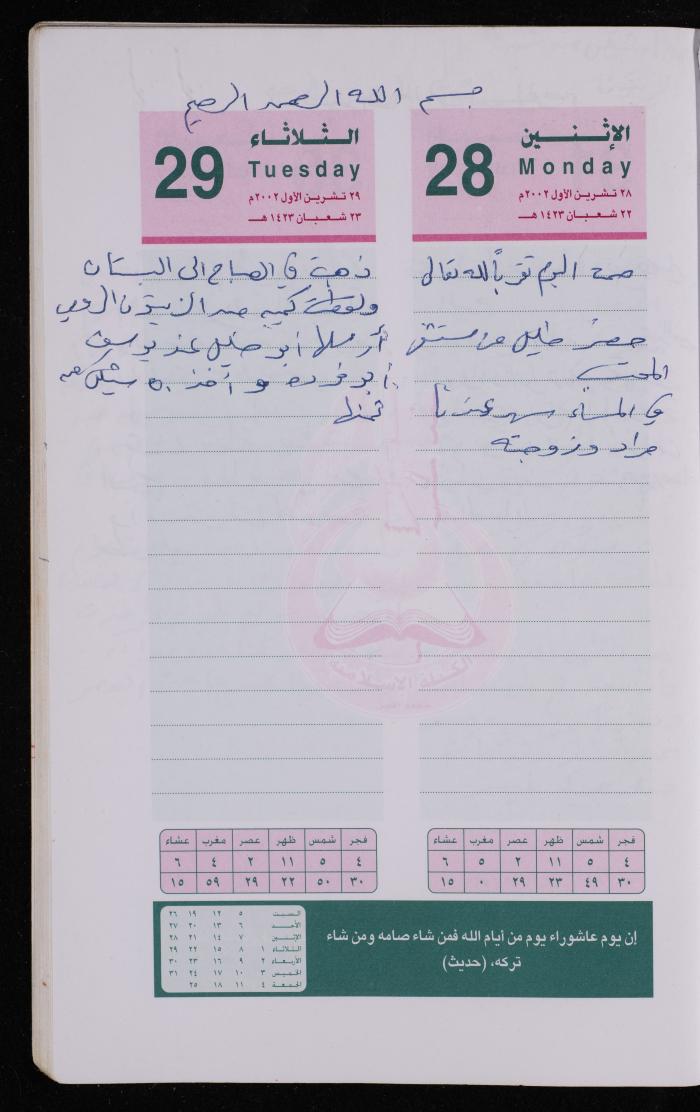 بسم الله الرحمن الرحيم
الإثنين
Monday
28
٢٨ تشرين الأول ٢٠٠٢م
٢٢ شعبان ١٤٢٣ هـ
صمت اليوم تقرباً لله تعالى
حضر خليل من مستشفى
المحتسب
في المساء سهر عندنا
مراد وزوجته
الثلاثاء
Tuesday
29
٢٩ تشرين الأول ٢٠٠٢م
٢٣ شعبان ١٤٢٣ هـ
ذهبت في الصباح الى البستان
ولقطت كمية من الزيتون
أرسلها أبو خليل عند يوسف
أبو فردة و أخذ ٥٠ شيكل من
ثمنها
الكتلة الاسلامية
فجر شمس ظهر عصر مغرب عشاء
٤ ٥ ١١ ٢ ٥ ٦
٣٠ ٤٩ ٢٣ ٢٩ ٠ ١٥
فجر شمس ظهر عصر مغرب عشاء
٤ ٥ ١١ ٢ ٤ ٦
٣٠ ٥٠ ٢٢ ٢٩ ٥٩ ١٥
إن يوم عاشوراء يوم من أيام الله فمن شاء صامه ومن شاء
تركه، (حديث)
السبت ٥ ١٢ ١٩ ٢٦
الأحد ٦ ١٣ ٢٠ ٢٧
الإثنين ٧ ١٤ ٢١ ٢٨
الثلاثاء ١ ٨ ١٥ ٢٢ ٢٩
الأربعاء ٢ ٩ ١٦ ٢٣ ٣٠
الخميس ٣ ١٠ ١٧ ٢٤ ٣١
الجمعة ٤ ١١ ١٨ ٢٥